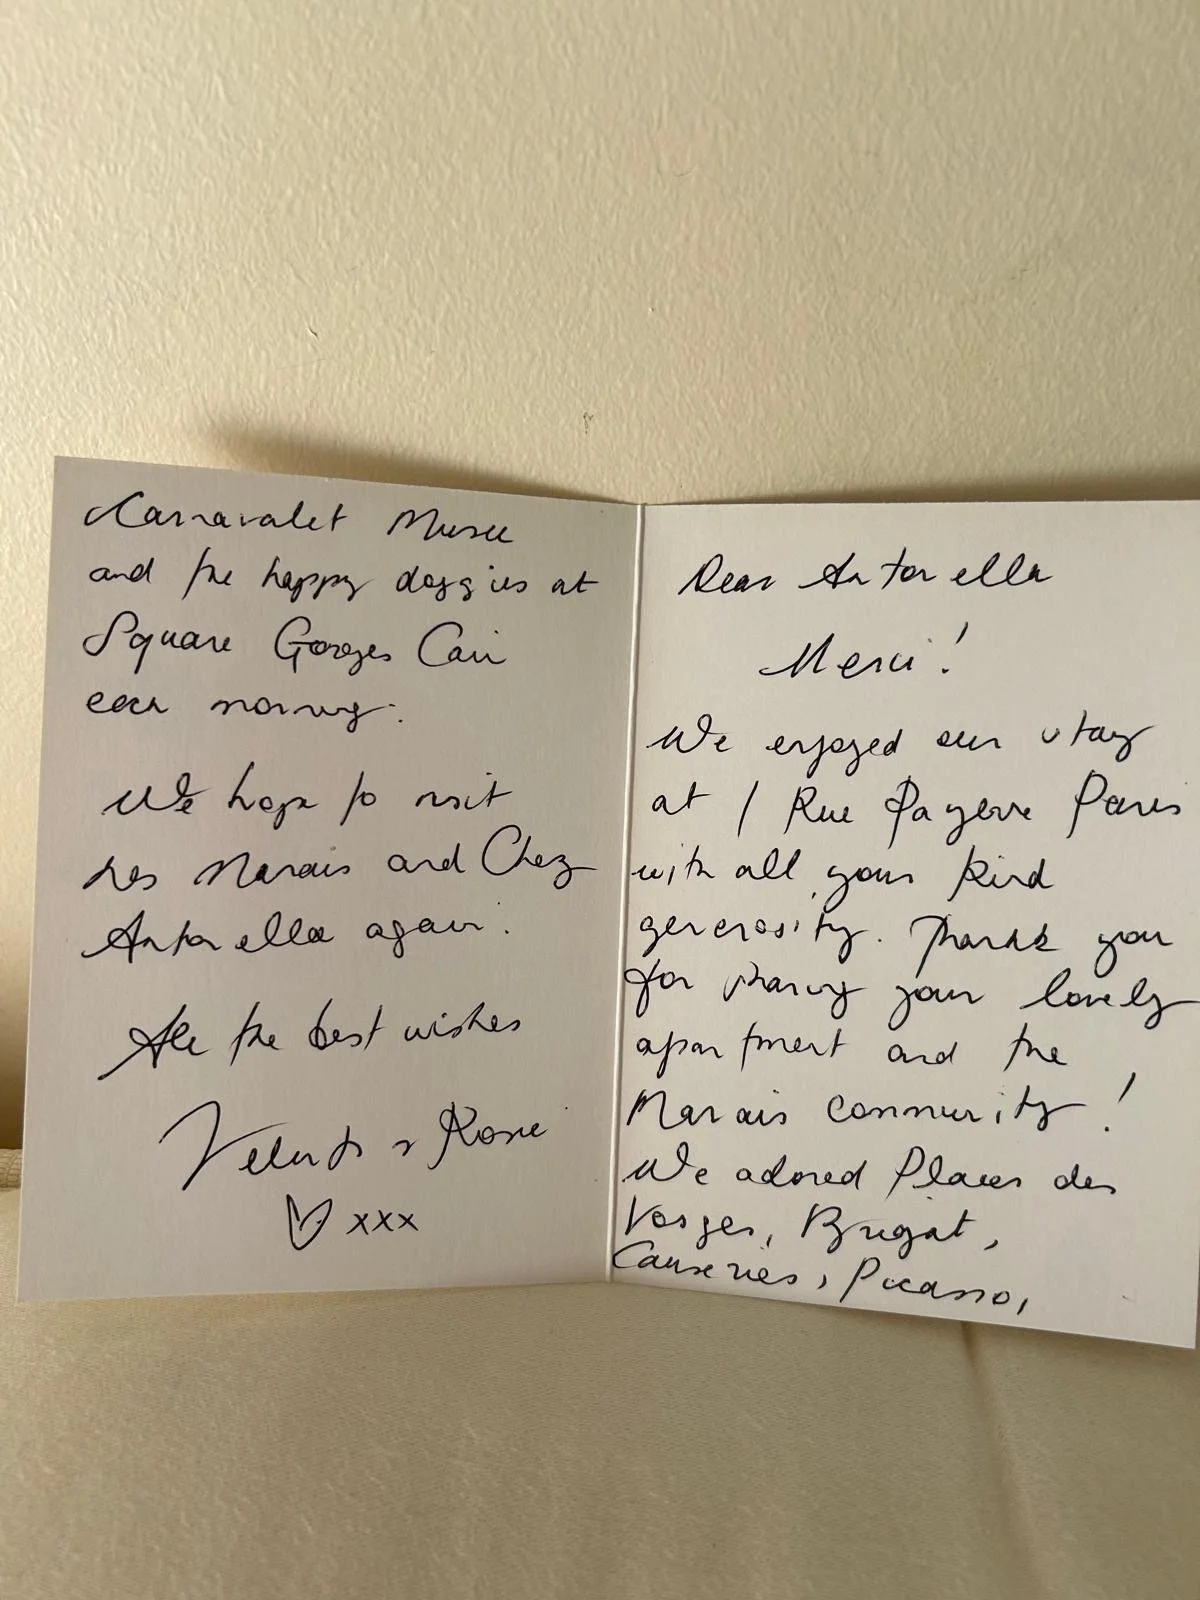 Dear Antonella
Merci!
We enjoyed our stay
at 1 Rue Payenne Paris
with all your kind
generosity. Thank you
for sharing your lovely
apartment and the
Marais community!
We adored Places des
Vosges, Brigat,
Causeries, Picasso,
Carnavalet Musee
and the happy doggies at
Square Georges Cain
each morning.
We hope to visit
Les Marais and Chez
Antonella again.
All the best wishes
& Rosie
xxx